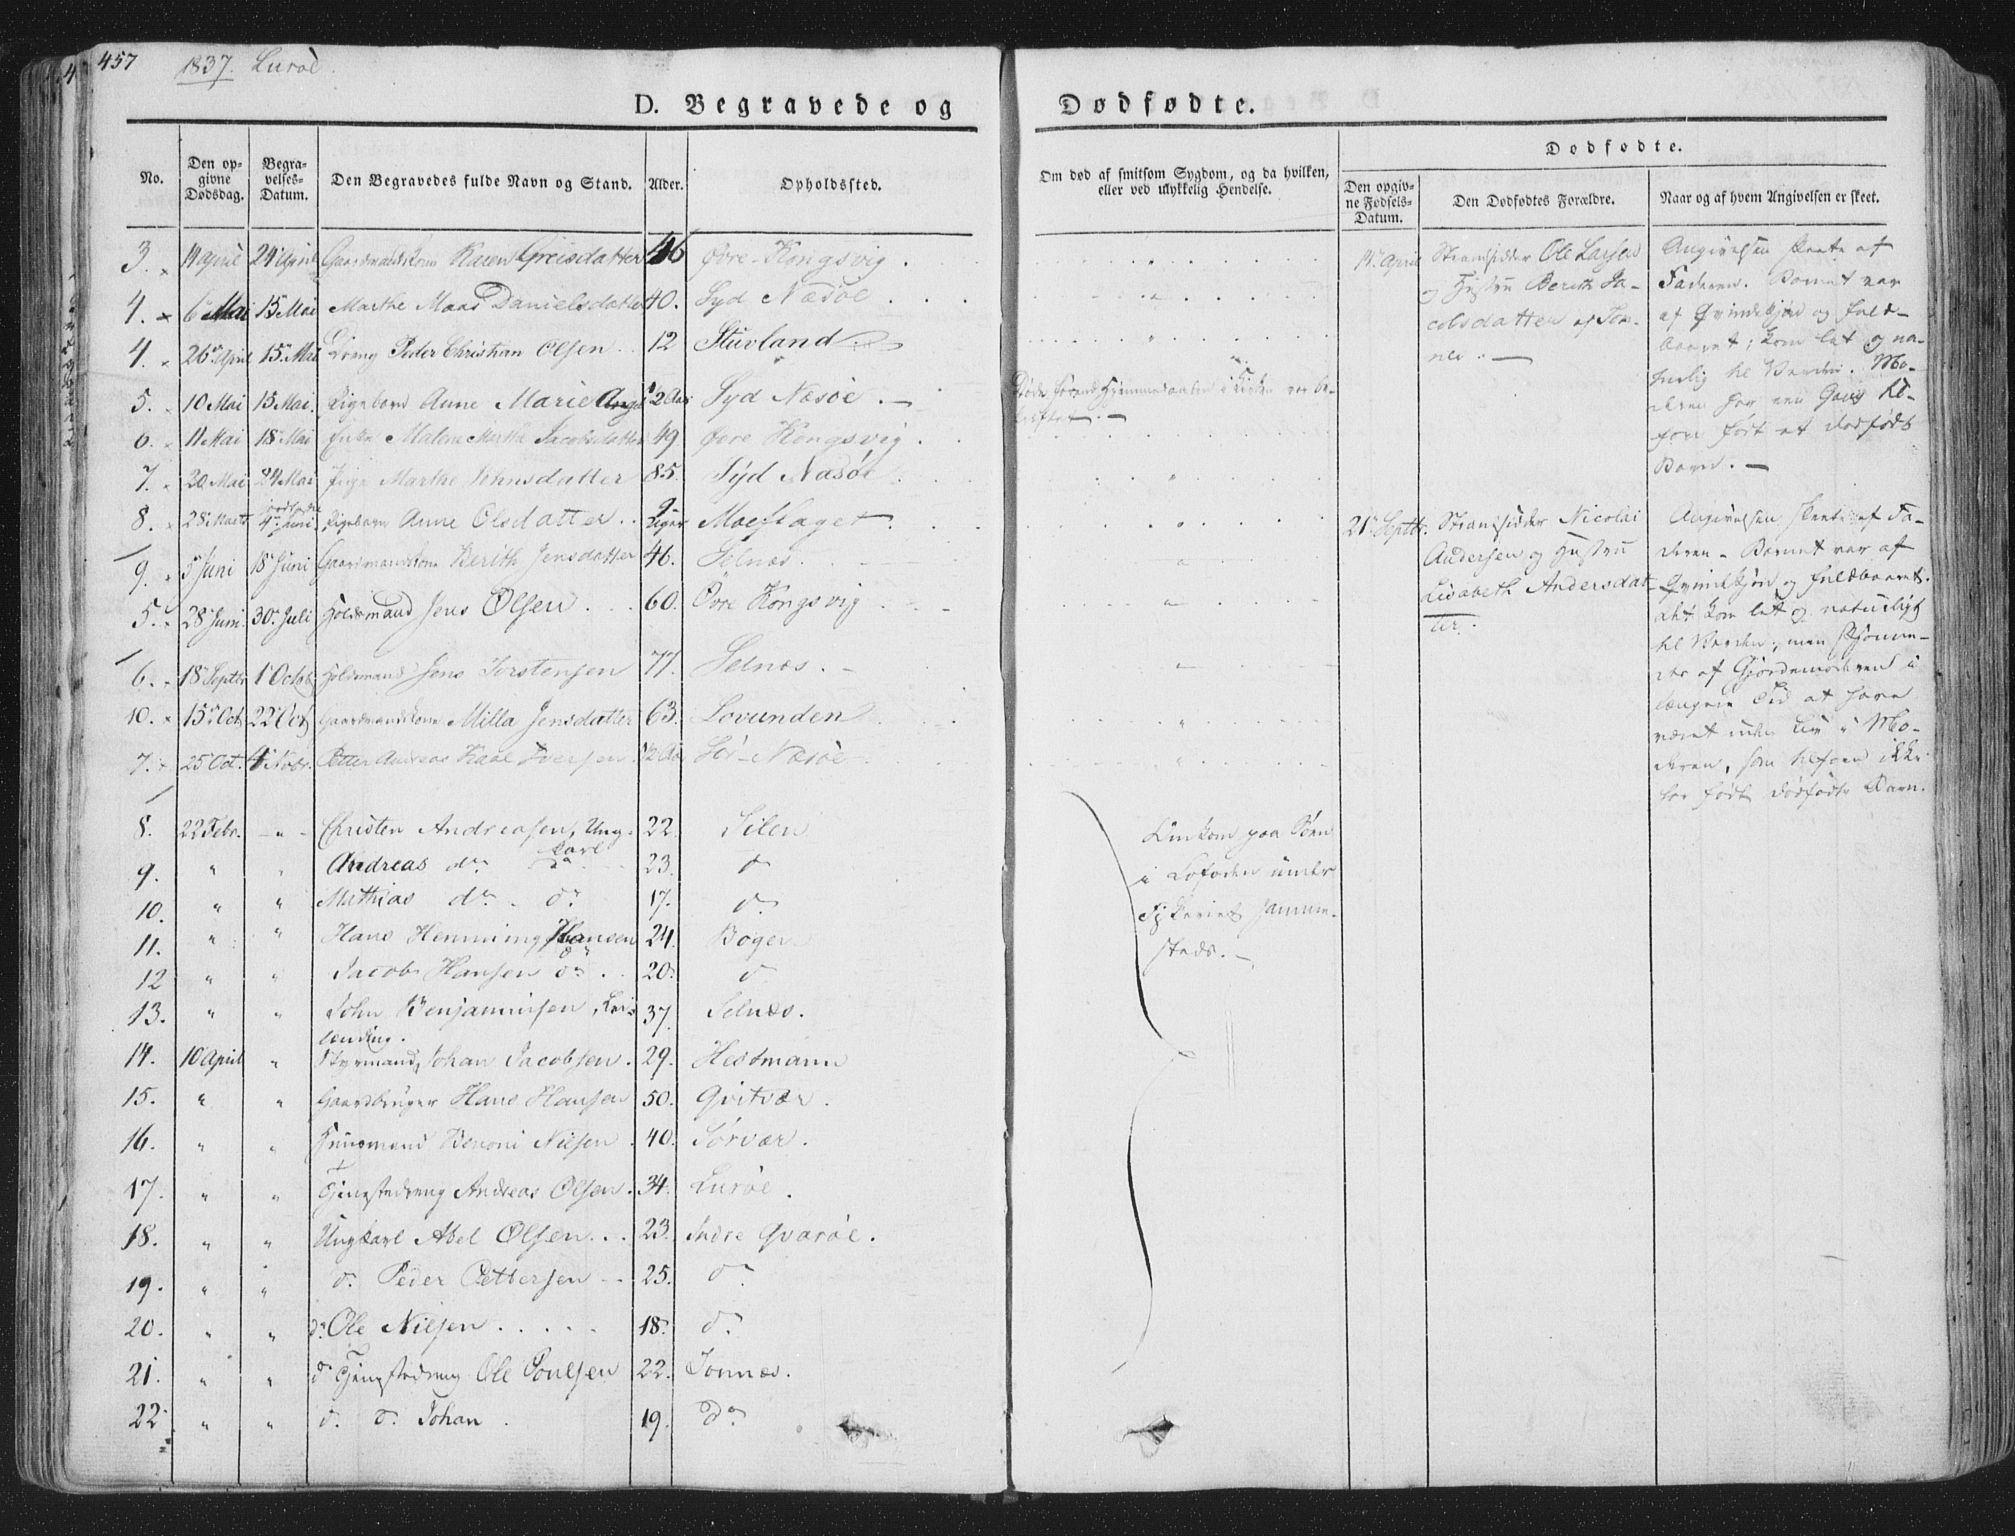 457 1837. Lurøe
D. Begravede og Dødfødte.
No. Den opgivne Dødsdag. Begravelses-Datum. Den Begravedes fulde Navn og Stand. Alder. Opholdssted. Om død af smitsom Sygdom, og da hvilken, eller ved ulykkelig Hendelse.
Dødfødte.
Den opgivne Fødsels-Datum. Den Dødfødtes Forældre. Naar og af hvem Angivelsen er skeet.
3. 14 April 24 April Gaardmandskone Karen Greisdatter 46 Øvre-Kongsvig.
4. 6 Mai 15 Mai Marthe Maas Danielsdatter 40. Syd Næsøe
4. 26 April 15 Mai Dreng Peder Christian Olsen 12 Stuvland
5. 10 Mai 15 Mai Pigebarn Anne Marie 1/2 Aar Syd Næsøe.
6. 11 Mai 18 Mai Enke Malene Marthe Jacobsdatter 49 Øvre Kongsvig.
7. 20 Mai 24 Mai Pige Marthe Johnsdatter 85. Syd Næsøe
8. 28 Marts 4 Juni Pigebarn Anne Olsdatter 9 Uger Moeflaget
9. 5 Juni 18 Juni Gaardmandskone Berith Jensdatter 46. Selnæs.
5. 28 Juni 30 Juli Holdsmand Jens Olsen 60. Øvre Kongsvig
6. 18 Septbr 1 Octob. Holdsmand Jens Torstensen 77. Selnæs.
10. 15 Oct 22 Oct Gaardmandskone Milla Jensdatter 63. Lovunden
7. 25 Oct. Novbr. Petter Andreas Iversen 1/2 Aar Sør-Næsøe
8. 22 Febr. - " - Christen Andreasen, Ungkarl 22. Silen
9. " " Andreas do do 23. do
10. " " Mathias do do 17. do
11. " " Hans Henning Hansen do 24. Bøgen
12 " " Jacob Hansen do 20. do
13. " " John Benjaminsen, Leilænding. 37. Selnæs.
14. 10 April " Styrmand, Johan Jacobsen. 29. Hestmann
15. " " Gaardbruger Hans Hansen 50. Qvitvær.
16. " " Huusmand Benoni Nilsen 40. Sørvær.
17. " " Tjenestedreng Andreas Olsen. 34. Lurøe.
18. " " Ungkarl Abel Olsen 23. Indre Qvarøe.
19. " " do Peder Pettersen 25. do
20. " " do Ole Nilsen 18. do
21. " " do Tjenestedreng Ole Poulsen 22. Tonnæs.
22. " " do do Johan 19. do
Omkom paa Søen
i Lofoden under
Fiskeriet sammesteds.
14 April Strandsidder Ole Larsen
og Hustru Berith Jacobsdatter af Tonnes.
Angivelsen skeete af
Faderen. Barnet var
af Qvindekjøn og fuldbaaret; kom let og naturlig til Verden. Moderen har een Gang tilforn født et dødfødt
Barn.
21 Septbr. Strandsidder Nicolai
Andersen og Hustru
Lisabeth Andersdatter.
Angivelsen skeete af Faderen. Barnet var af
Qvindekjøn og fuldbaaret.
det kom let og naturligt
til Verden; men skjønnedes af Gjordemoderen i
længere Tid at have
været uden Liv i Moderen, som tilforn ikke
har født dødfødte Barn.